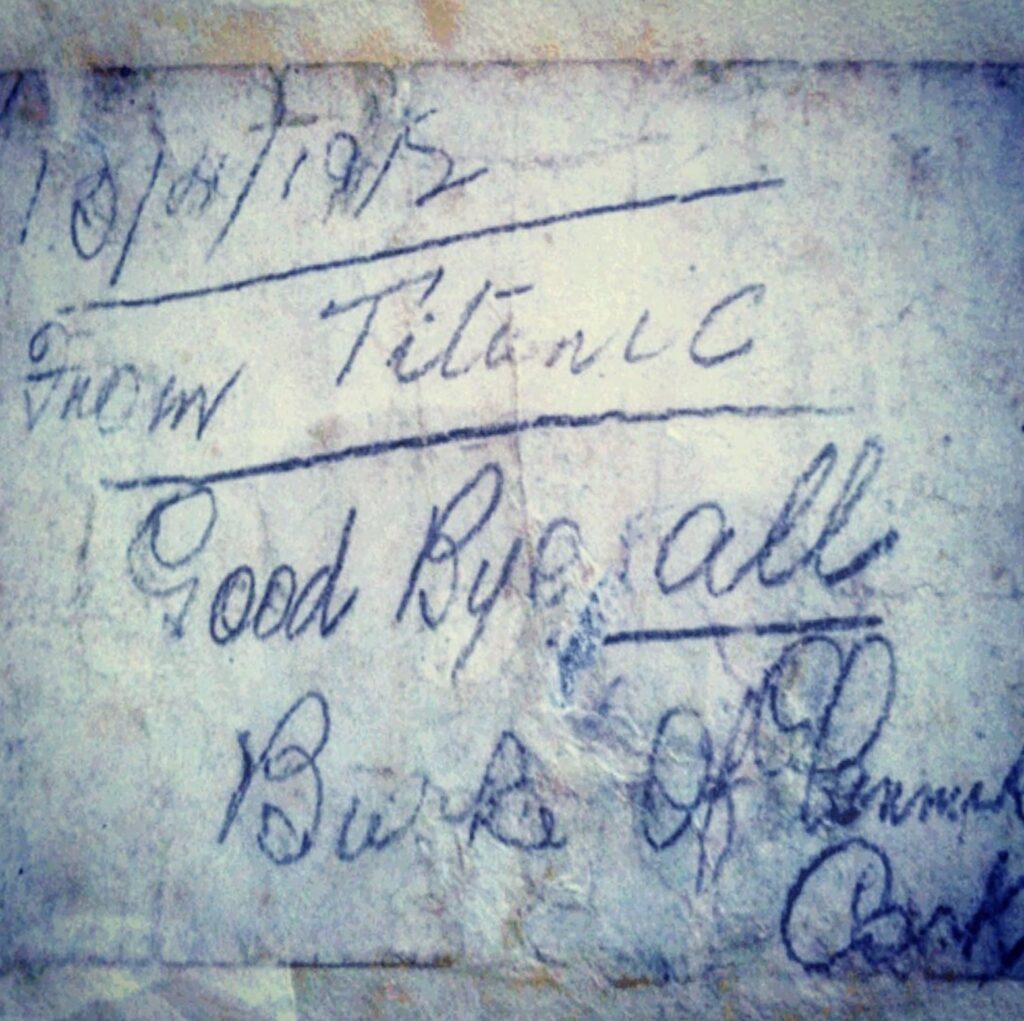 13/04/1912
From Titanic
Good Bye all
Burke Of
Cork